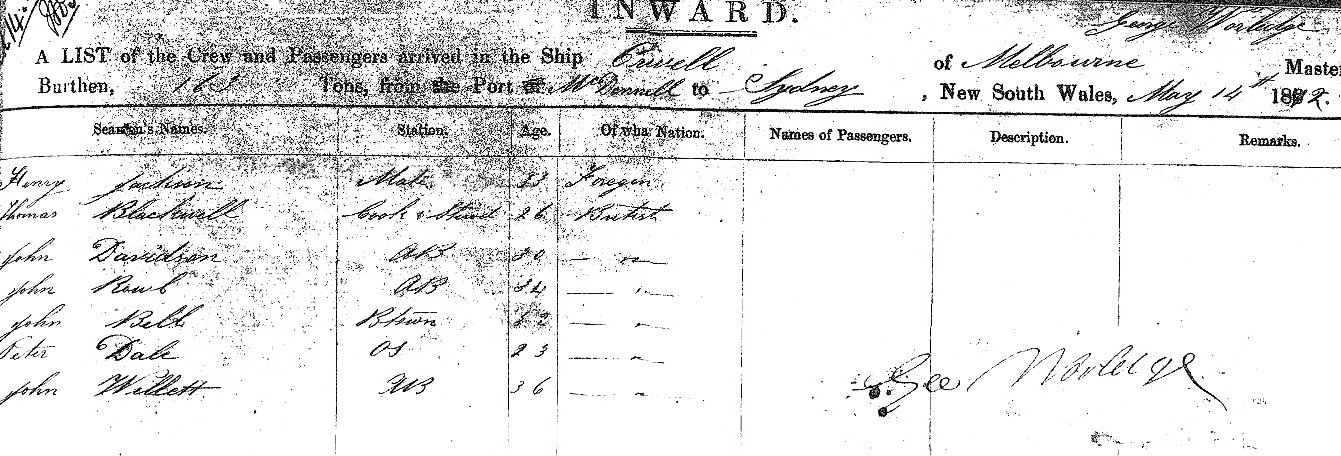 INWARD.
George Worledge
A LIST of the Crew and Passengers arrived in the Ship Orwell of Melbourne Master
Burthen, 163 Tons, from the Port of McDonnell to Sydney, New South Wales, May 14th 1872.
Seamen's Names. Station. Age. Of what Nation. Names of Passengers. Description. Remarks.
Henry Jackson Mate 33 Foregin
Thomas Blackwell Cook & Stuwd 26 British
John Davidson AB 30 — " —
John AB 34 — " —
John Bell — " —
Peter Dale OS 23 — " —
John Willett AB 36 — " —
Geo Worledge